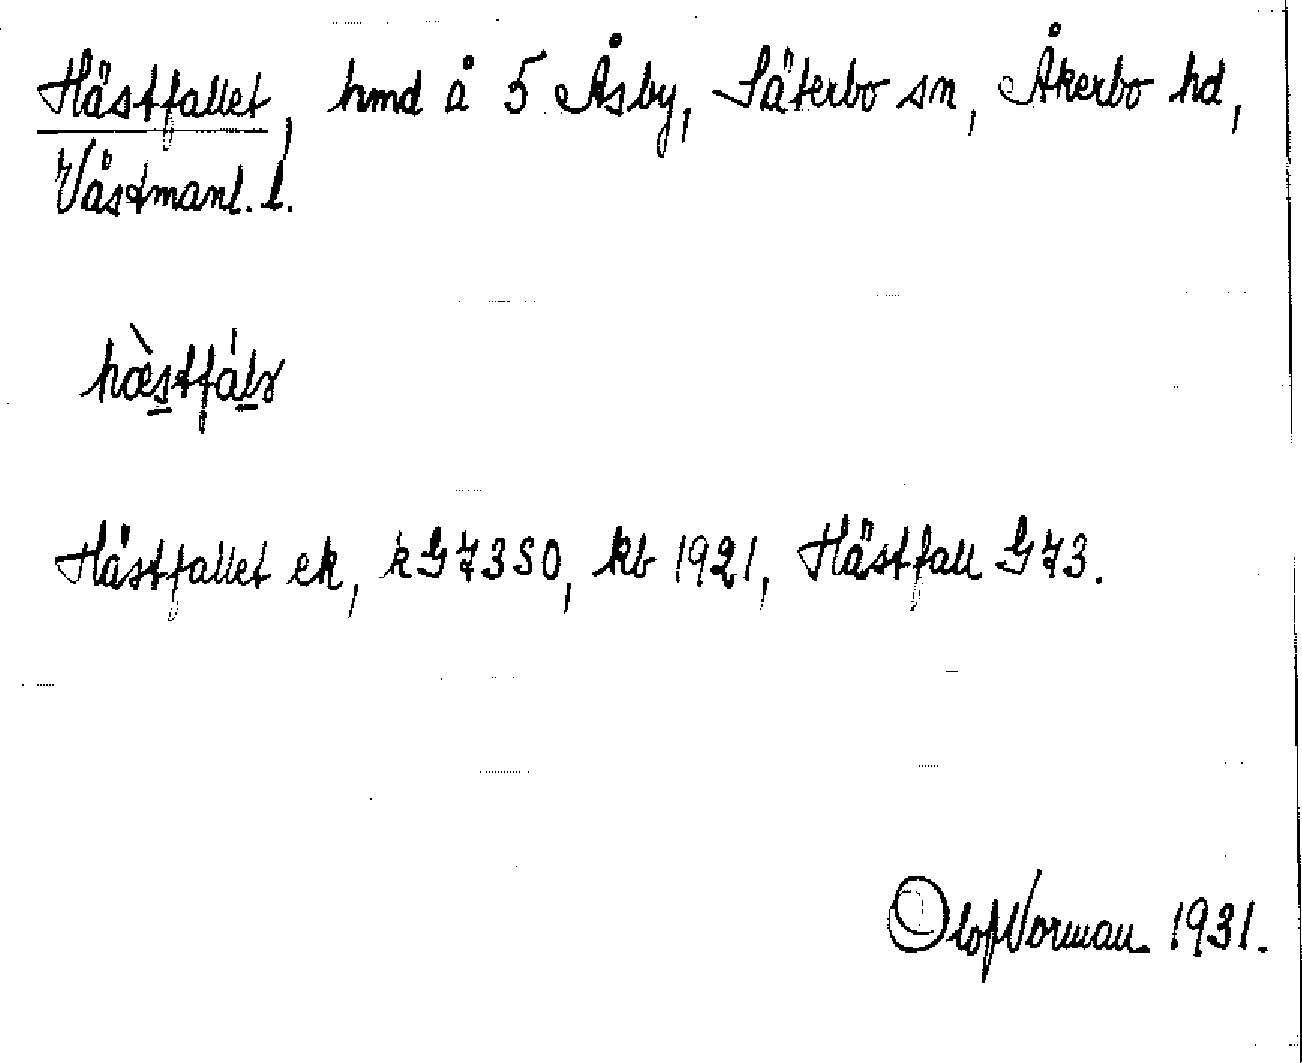 Hästfallet, hmd å 5 Åsby, Säterbo sn, Åkerbo hd,
Västmanl. l.
hæ̀stfálɤ
Hästfallet ek, kG73SO, kb 1921, Hästfall G73.
Olof Norman 1931.